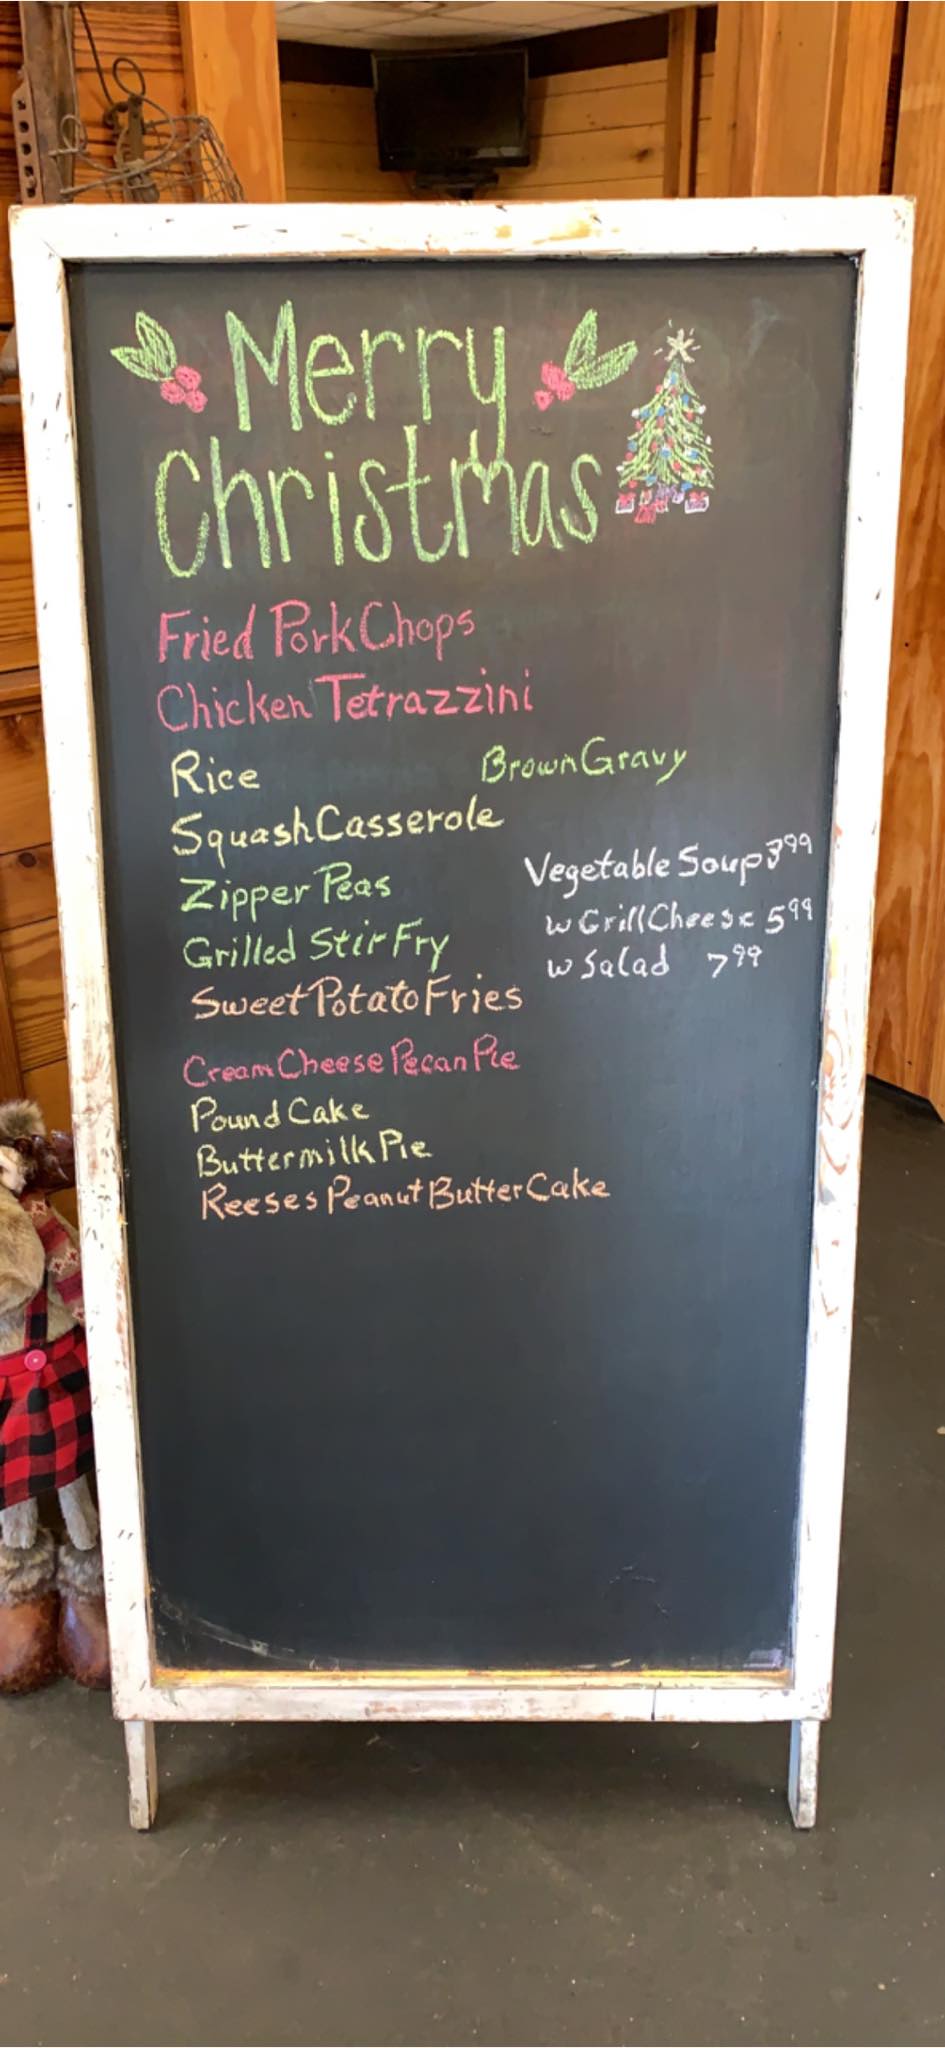 Merry
Christmas
Fried Pork Chops
Chicken Tetrazzini
Rice
Brown Gravy
Squash Casserole
Zipper Peas
Grilled Stir Fry
Sweet Potato Fries
Vegetable Soup 3.99
w Grill Cheese 5.99
w Salad 7.99
Cream Cheese Pecan Pie
Pound Cake
Buttermilk Pie
Reeses Peanut Butter Cake